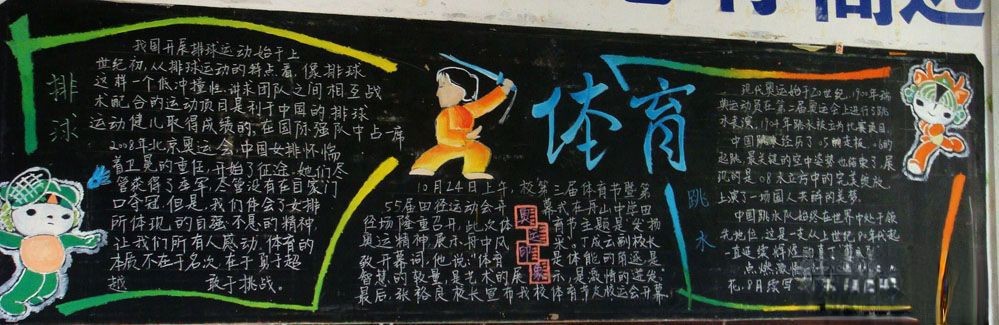 排球
我国开展排球运动始于上
世纪初,从排球运动的特点看,像排球
这样一个低冲撞性,讲求团队之间相互战
术配合的运动项目是利于中国的排球
运动健儿取得成绩的,在国际强队中占一席
2008年北京奥运会,中国女排怀惴
着卫冕的重任,开始了征途,她们尽
管获得了季军,尽管没有在自家门
口夺冠,但是,我们体会了女排
所体现的自强不息的精神,
让我们所有人感动,体育的
本质不在于名次,在于勇于超
越 敢于挑战。
体育
10月24日上午,校第三届体育节暨第
55届田径运动会开幕式在舟山中学田
径场隆重召开,此次体育节主题是发扬
奥运精神,展示舟中风采,丁成云副校长
致开幕词,他说:“体育是体能的角逐是
智慧的较量,是艺术的展示,是激情的迸发。
最后,张裕良校长宣布我校体育节及校运会开幕!
奥运印象
跳水
现代奥运始于20世纪,1900年瑞
奥运动员在第二届奥运会上进行了跳
水表演,1904年跳水被立为比赛项目,
的空中姿势也结束了,展
现的是08水立方中的完美绽放,
上演了一场国人夫群的美梦。
中国跳水队始终在世界中处于领
先地位,这是一支从上世纪80年代起
一直延续辉煌
点燃激
花,8月续写